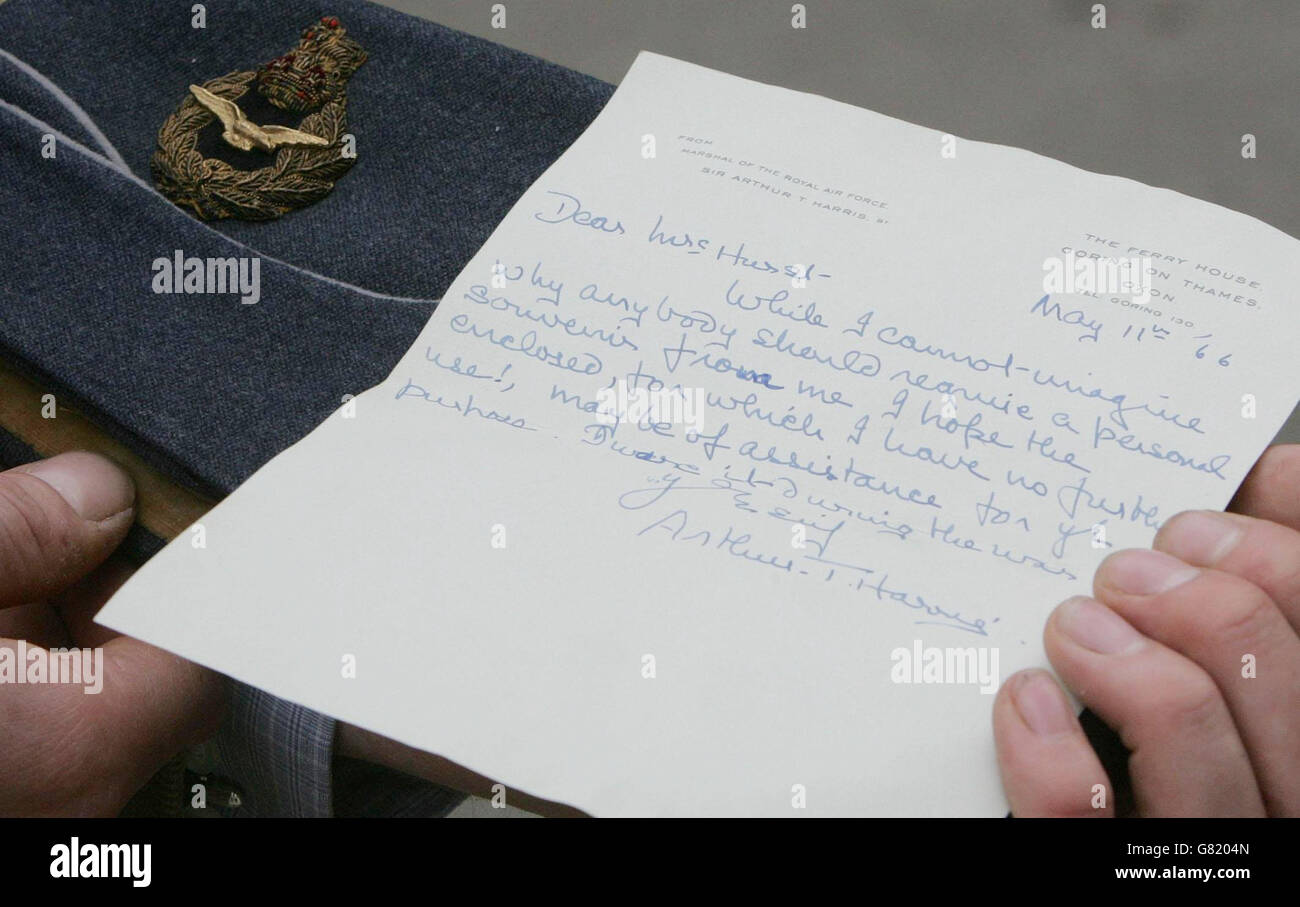 FROM
MARSHAL OF THE ROYAL AIR FORCE
SIR ARTHUR T HARRIS. Bt
THE FERRY HOUSE.
GORING ON THAMES.
OXON.
TEL GORING 130.
May 11th /66
Dear Mrs Hurst-
While I cannot imagine
why anybody should require a personal
souvenir from me I hope the
enclosed, for which I have no further
use!, may be of assistance for yr
purpose. I wore it during the war.
Arthur T. Harris.
alamy
Image ID: G8204N
www.alamy.com